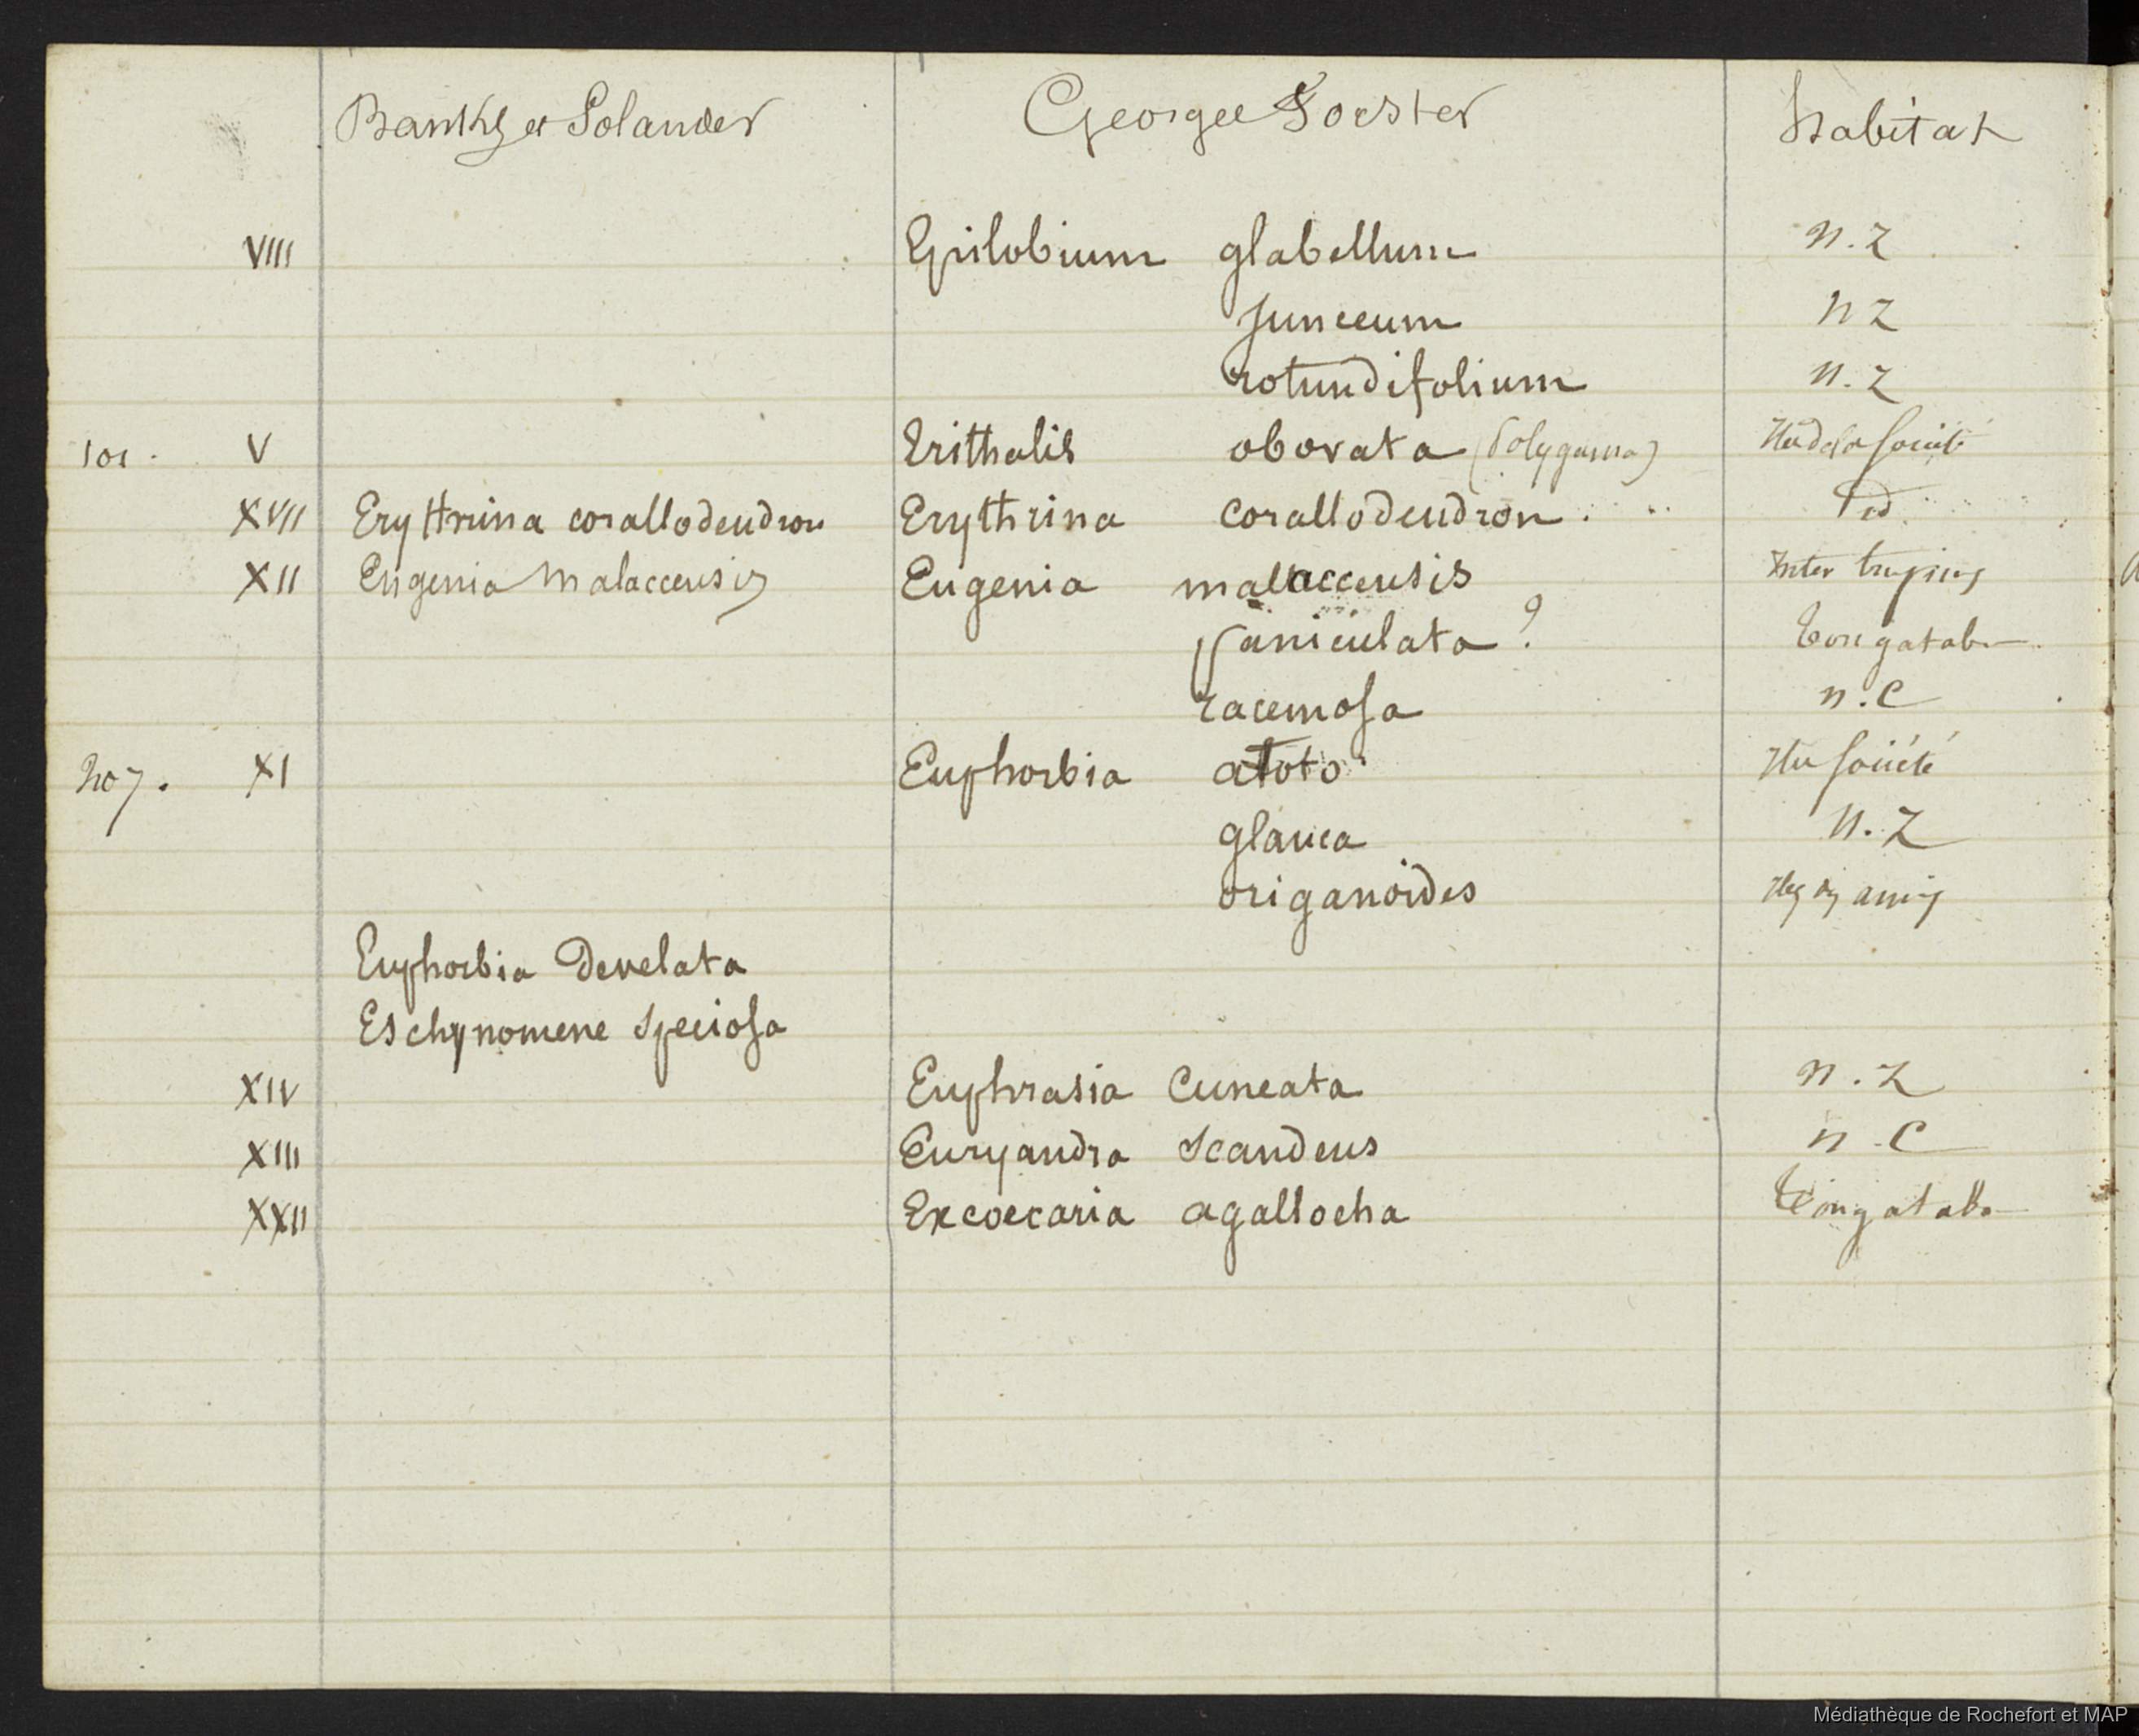 Banks et Solander George Forster Habitat
VIII Epilobium glabellum N.Z
junceum N Z
rotundifolium N.Z
101. V Erithalis obovata (Polygama) Iles de la Société
XVII Erythrina corallodendron Erythrina corallodendron . .. id.
XII Eugenia malaccensis Eugenia malaccensis Inter tropics
paniculata ? Tongatabu
racemosa N.C
207. XI Euphorbia atoto Iles Société
glauca N.Z
origanoides Iles des amis
Euphorbia develata
Eschynomene speciosa
XIV Euphrasia cuneata N.Z
XIII Euryandra scandens N.C
XXII Excoecaria agallocha Tongatabu
Médiathèque de Rochefort et MAP